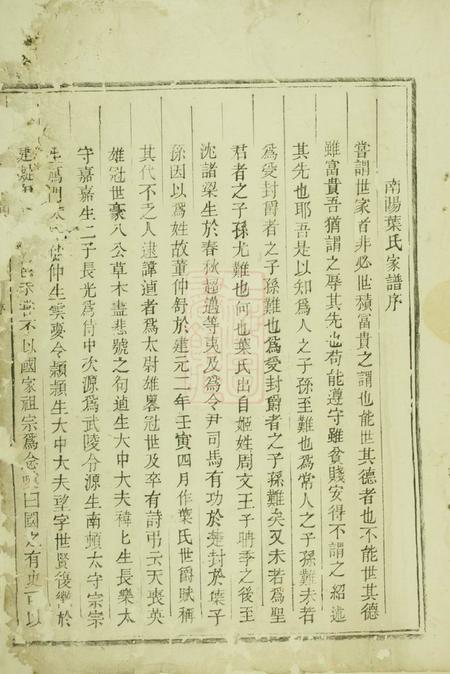 南陽葉氏家譜序
嘗謂世家者非必世積富貴之謂也能世其德者也不能世其德
雖富貴吾猶謂之辱其先也苟能遵守雖貧賤安得不謂之紹述
其先也耶吾是以知為人之子孫至難也為常人之子孫難未若
為受封爵者之子孫難也為受封爵者之子孫難矣又未若為聖
君者之子孫尤難也何也葉氏出自姬姓周文王子聃季之後至
沈諸梁生於春秋超邁等夷及為令尹司馬有功於楚封於葉子
孫因以為姓故董仲舒於建元二年壬寅四月作葉氏世爵賦稱
其代不乏人逮譚逌者為太尉雄畧冠世及卒有詩弔云天喪英
雄冠世豪八公草木盡悲號之句逌生大中大夫禕匕生長樂太
守嘉嘉生二子長光為侍中次源為武陵令源生南頓太守宗宗
生鴈門太 仲仲生雲夢令顥顥生大中大夫望字世賢復 於
建 不以國家祖宗為念 曰國之有史 以